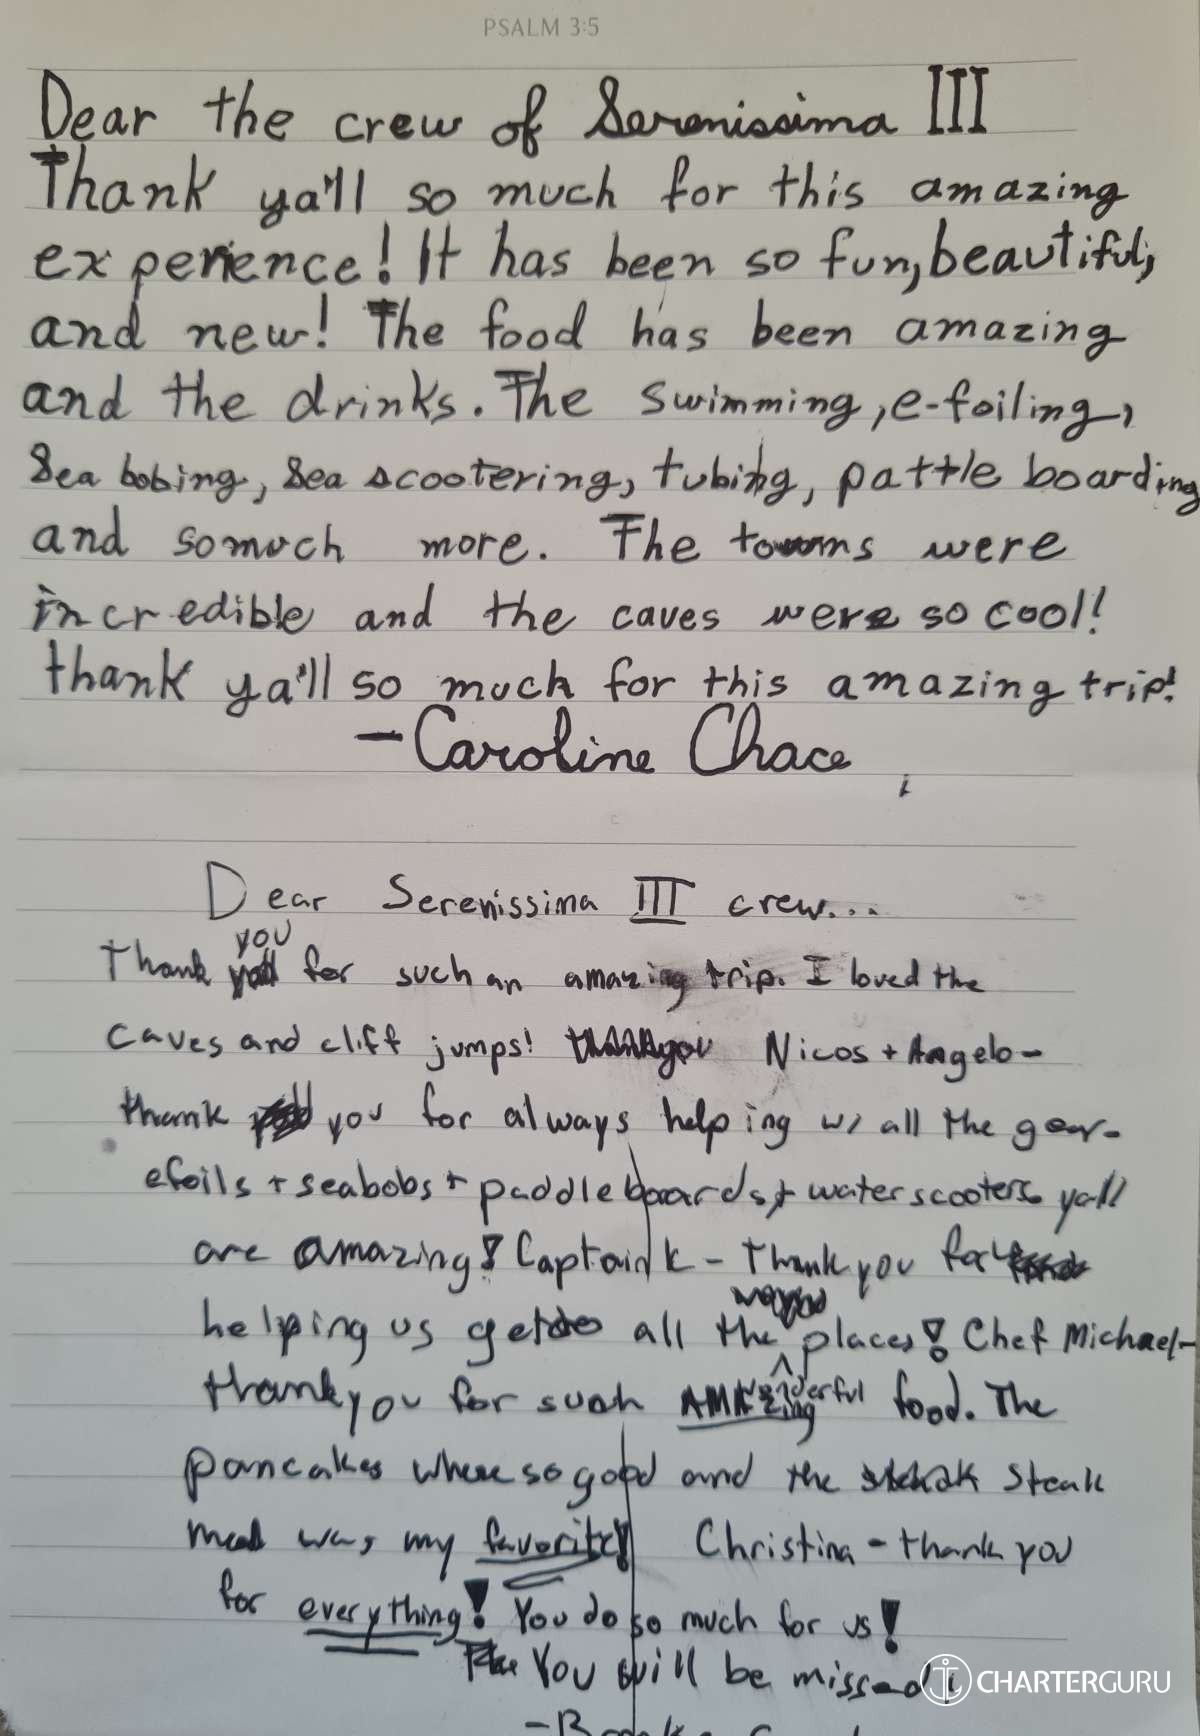 PSALM 3:5
Dear the crew of Serenissima III
Thank ya'll so much for this amazing
experience! It has been so fun, beautiful,
and new! The food has been amazing
and the drinks. The swimming, e-foiling,
Sea bobing, Sea scootering, tubing, pattle boarding
and somuch more. The towns were
incredible and the caves were so cool!
thank ya'll so much for this amazing trip!
- Caroline Chace
Dear Serenissima III crew...
you
Thank for such an amazing trip. I loved the
caves and cliff jumps! Nicos + Angelo -
thank you for always helping w/ all the gear -
efoils + seabobs + paddleboards, + waterscooters yall
are amazing! Captain K - Thank you for
helping us get to all the places! Chef Michael -
thank you for such AMAZING wonderful food. The
pancakes where so good and the steak
meal was my favorite! Christina - thank you
for everything! You do so much for us!
You will be missed!
CHARTERGURU